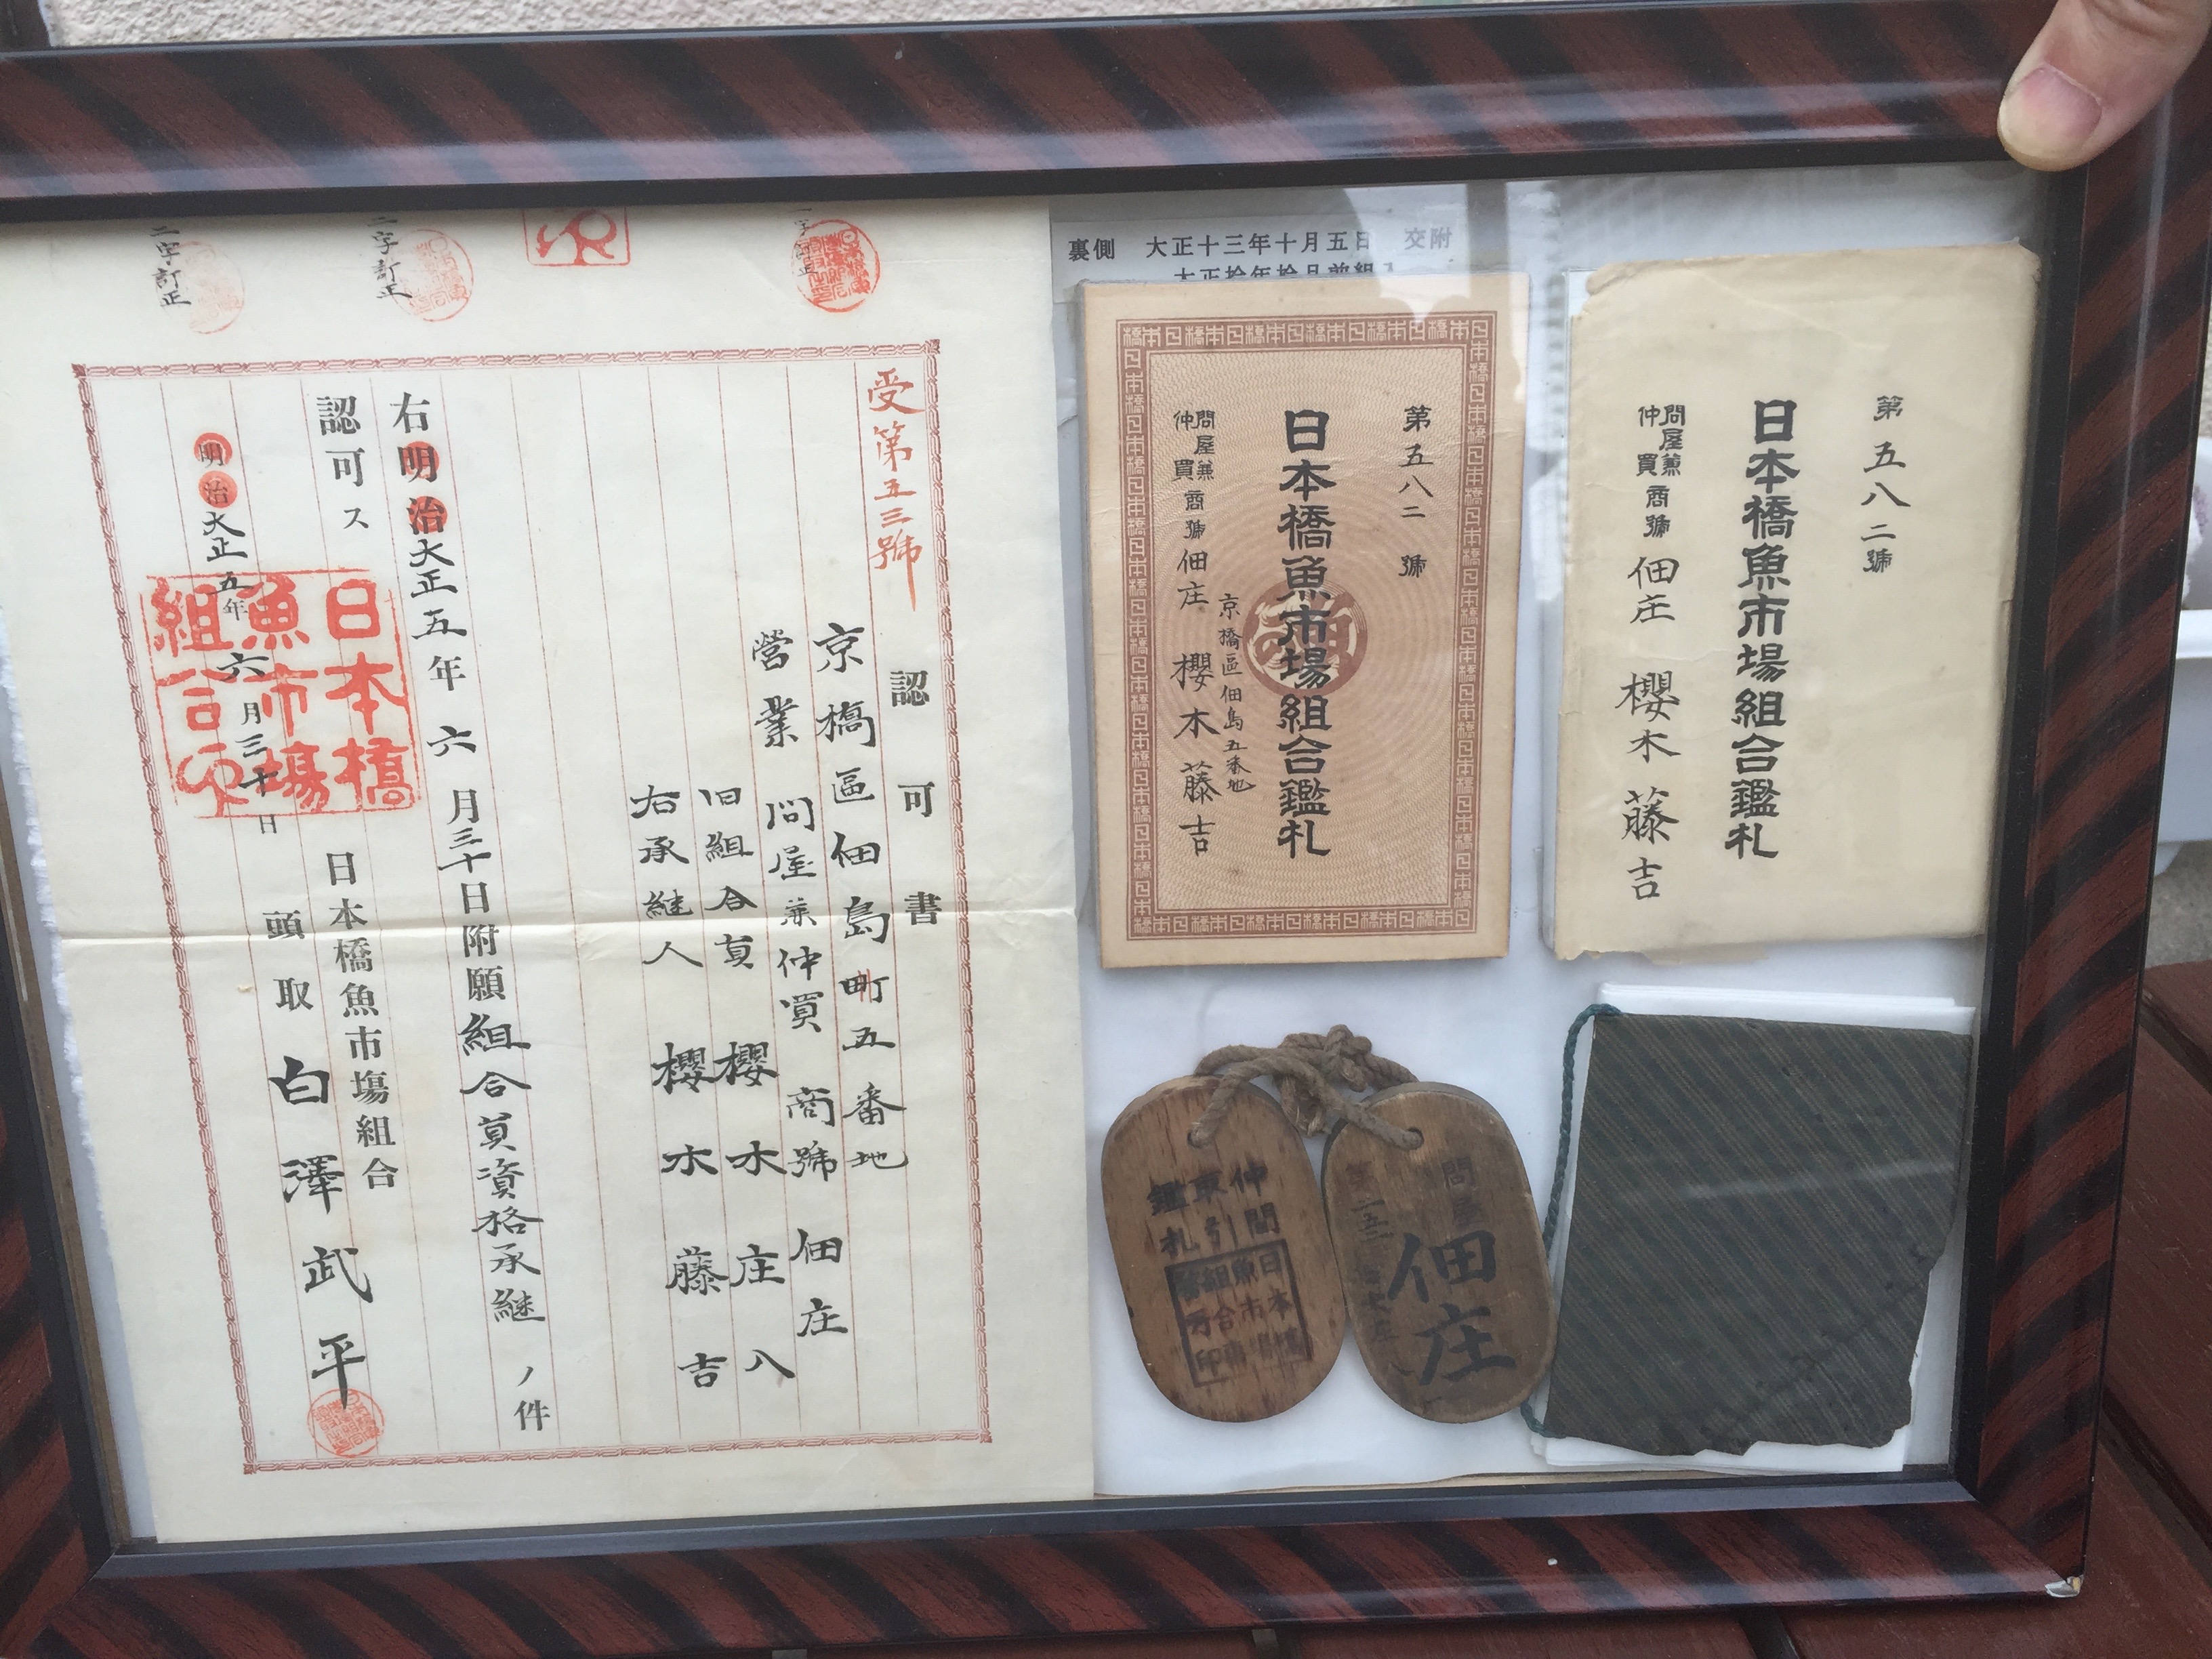 二字訂正
二字訂正
受第五三號
認可書
京橋區佃島町五番地
營業 問屋兼仲買 商號 佃庄
旧組合員 櫻木庄八
右承継人 櫻木藤吉
右明治大正五年六月三十日附願組合員資格承継ノ件
認可ス
明治大正五年六月三十日
日本橋魚市場組合
頭取 白澤武平
日本橋
魚市場
組合
裏側 大正十三年十月五日 交附
大正拾年拾月前組
第五八二號
日本橋魚市場組合鑑札
京橋區佃島五番地
問屋兼仲買商號 佃庄 櫻木藤吉
第五八二號
日本橋魚市場組合鑑札
問屋兼仲買商號 佃庄 櫻木藤吉
仲間
取引
鑑札
日本橋
魚市場
問屋
佃庄